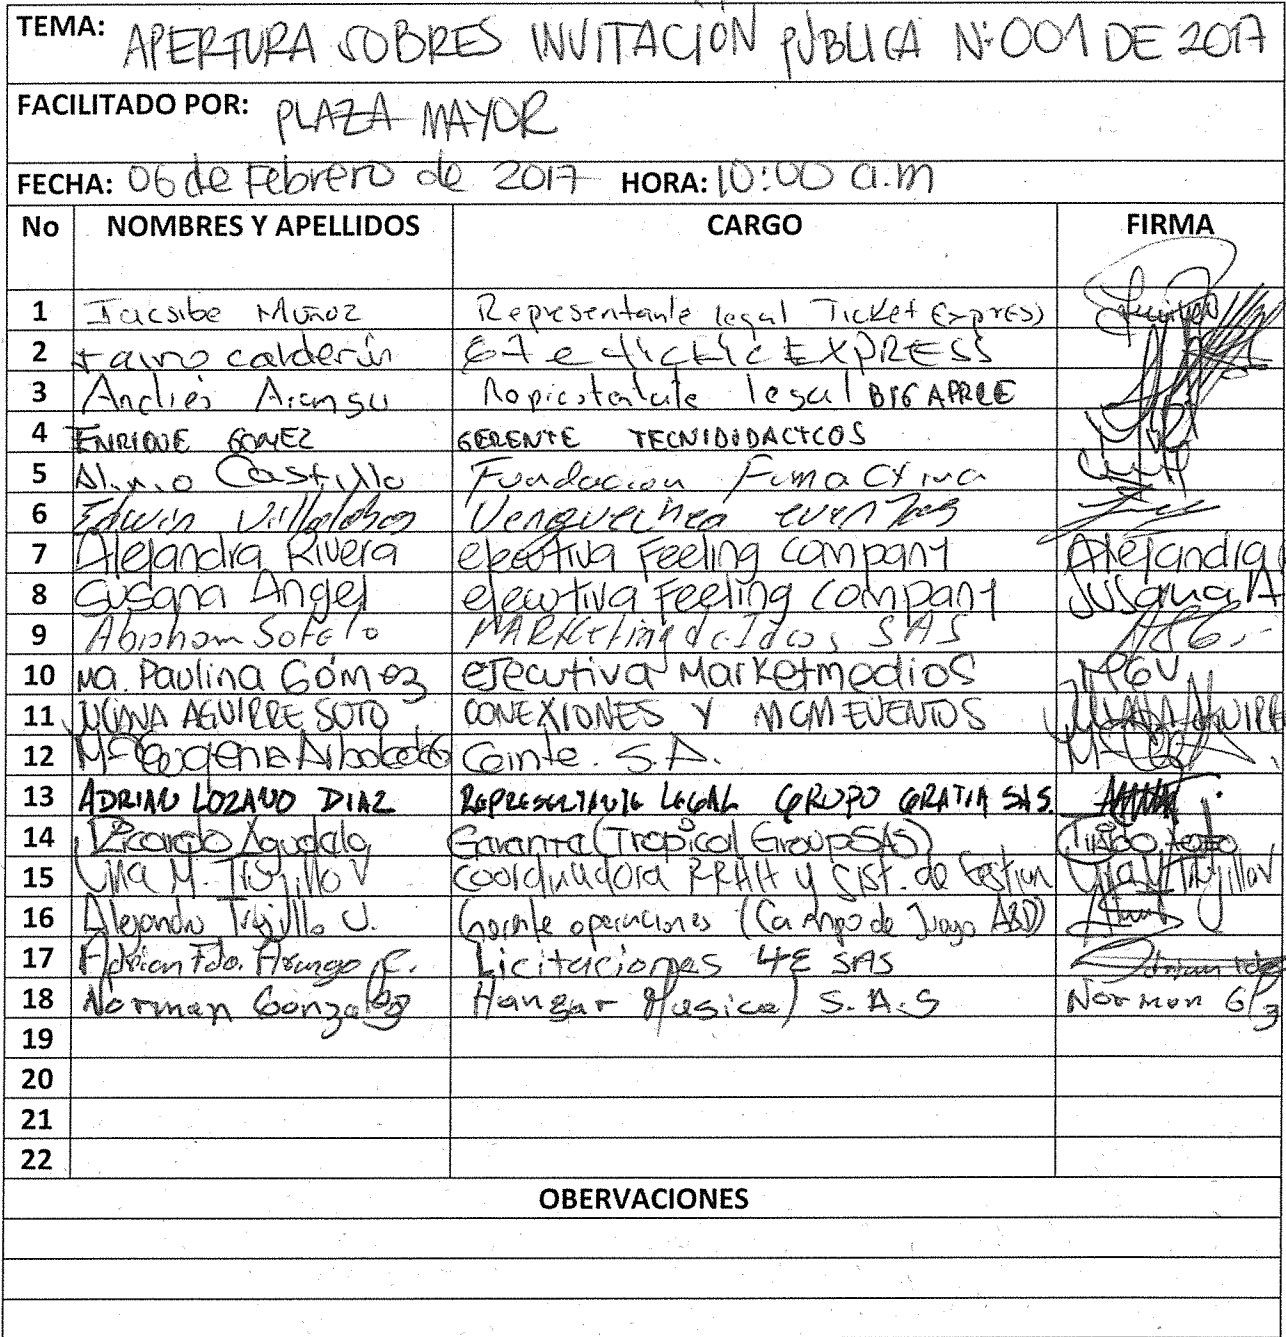 TEMA: APERTURA SOBRES INVITACIÓN PÚBLICA N:001 DE 2017
FACILITADO POR: PLAZA MAYOR
FECHA: 06 de Febrero de 2017 HORA: 10:00 a.m
No NOMBRES Y APELLIDOS CARGO FIRMA
1 Muñoz Representante legal Ticket Express
2 calderín EXPRESS
3 Andrés Arango legal BIG APPLE
4 ENRIQUE GOMEZ GERENTE TECNIDIDACTCOS
5 Castillo Fundación
6 Edwin Villalobos eventos
7 Alejandra Rivera ejecutiva Feeling company Alejandra
8 Susana Angel ejecutiva Feeling company Susana A
9 Abraham Sotelo MARKeting de Ideas SAS
10 Ma. Paulina Gómez ejecutiva Marketmedios PGV
11 JULIANA AGUIRRE SOTO CONEXIONES Y MCM EVENTOS JULIANA AGUIRRE
12 Mª Eugenia Arboleda Cointe. S.A.
13 ADRIAN LOZANO DIAZ REPRESENTANTE LEGAL GRUPO GRATIA SAS.
14 Ricardo Agudelo (Tropical Group SAS)
15 M. Trujillo V Coordinadora RRHH y Sist. de Gestion Trujillo V
16 Alejandro Trujillo J. Gerente operaciones (Campo de Juego A&D)
17 Adrian Fdo. Arango C. Licitaciones 4E SAS Adrian
18 Norman Gonzalez Hangar Musical S.A.S Norman G
19
20
21
22
OBERVACIONES